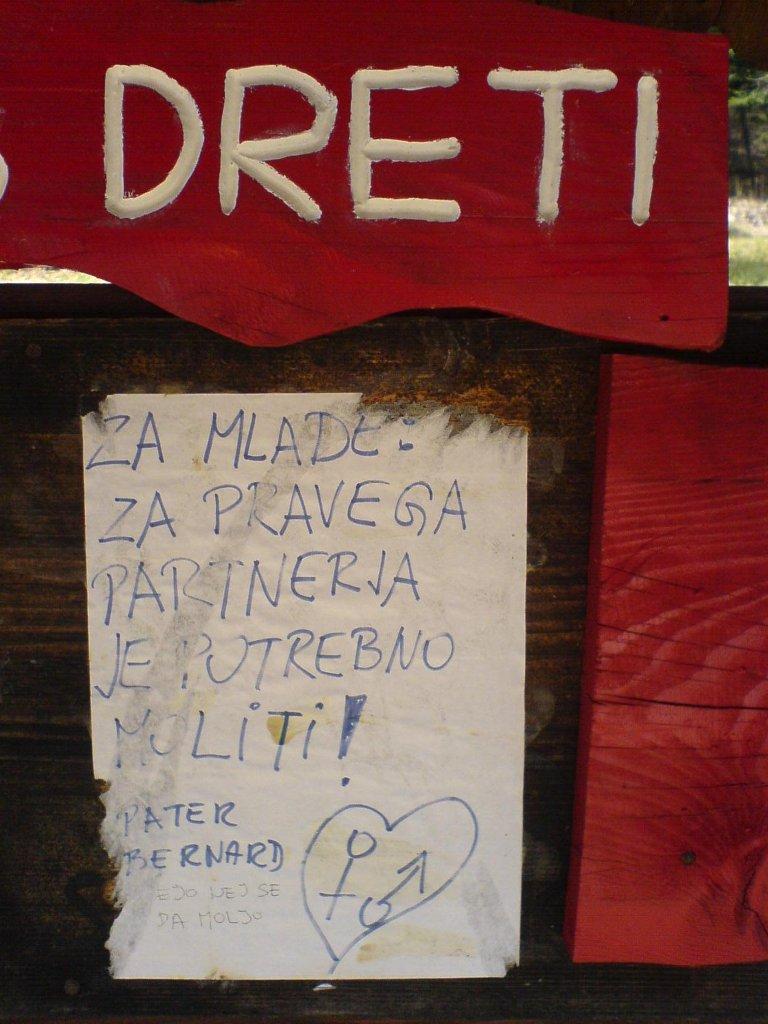 DRETI
ZA MLADE:
ZA PRAVEGA
PARTNERJA
JE POTREBNO
MOLITI!
PATER
BERNARD
NEJ SE
DA MOLJO